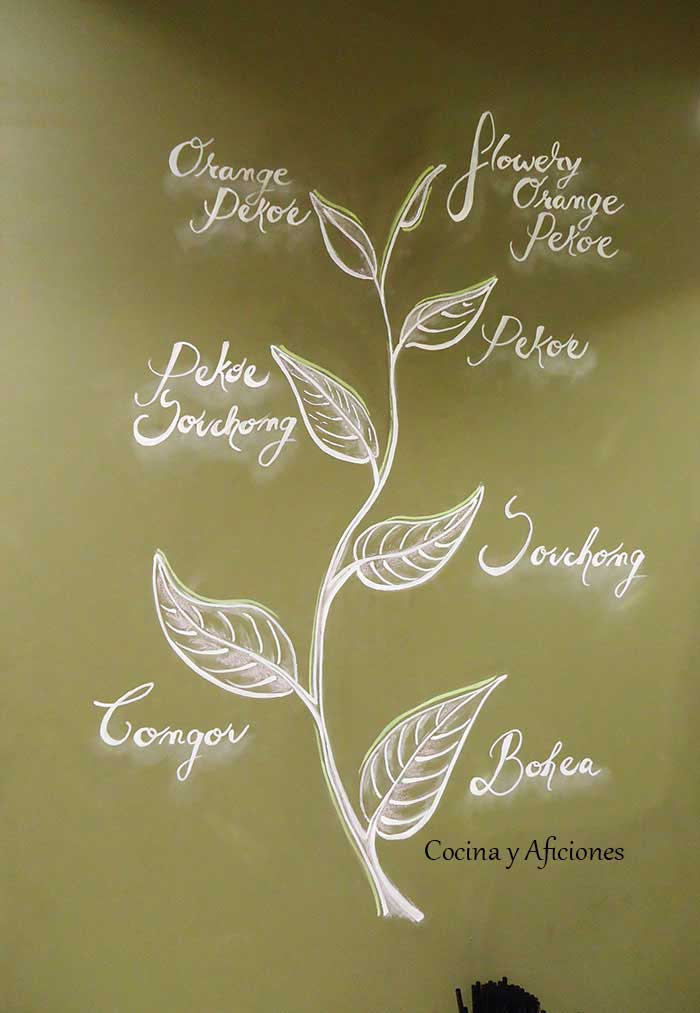 Orange
Pekoe
Flowery
Orange
Pekoe
Pekoe
Pekoe
Souchong
Souchong
Congou
Bohea
Cocina y Aficiones